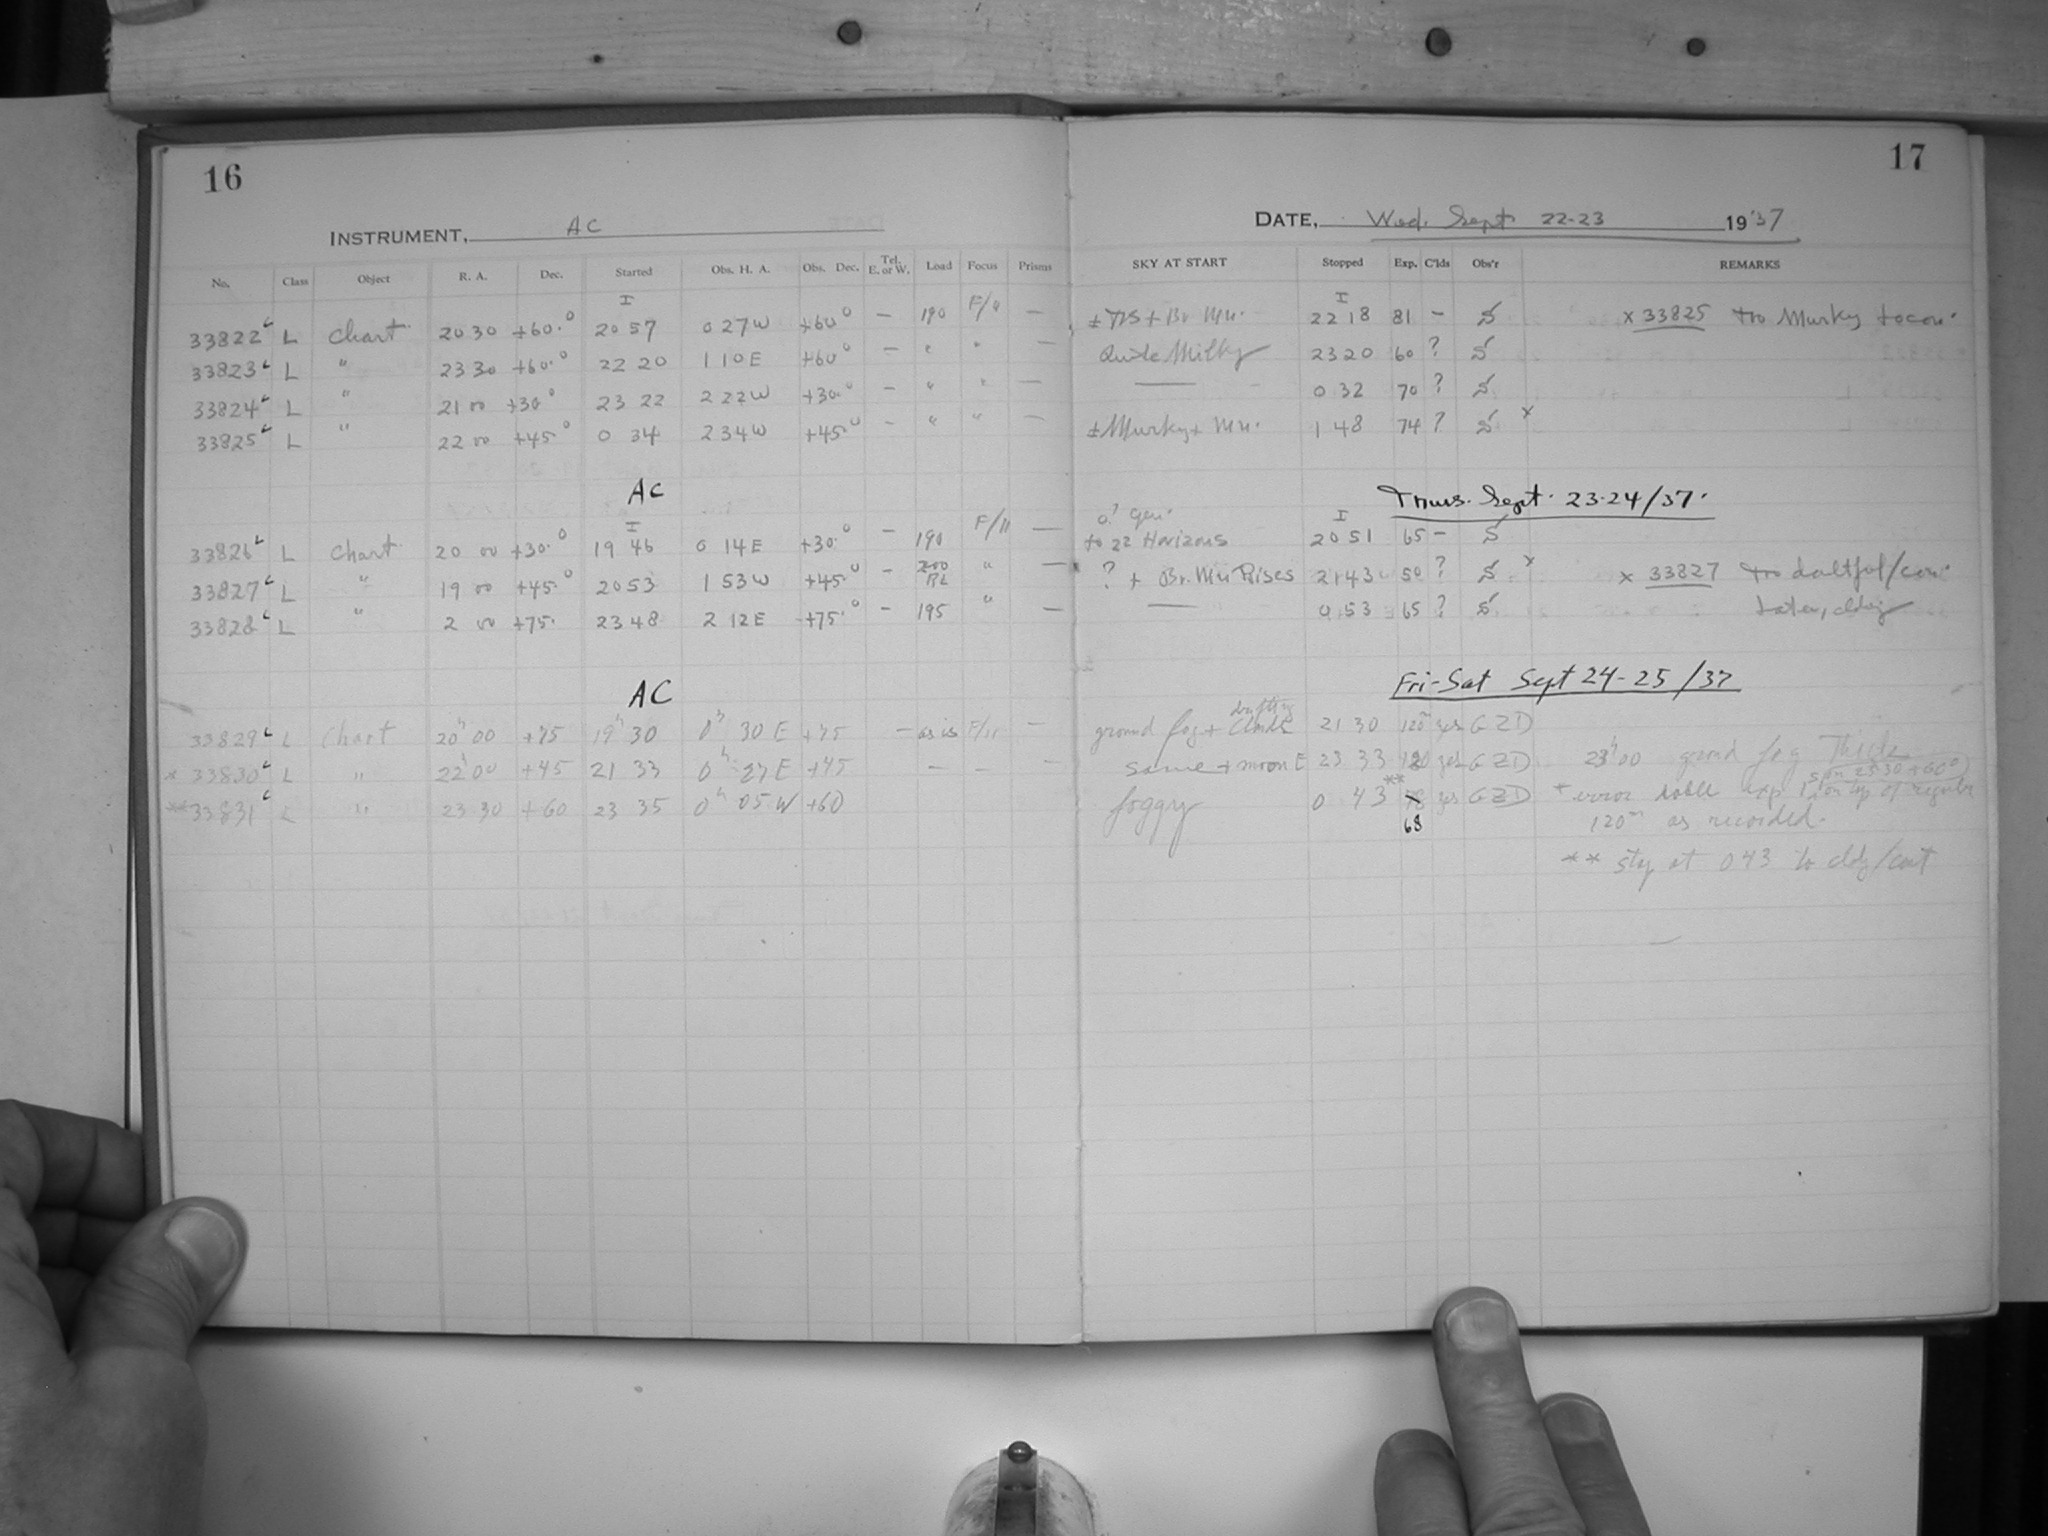 16
17
INSTRUMENT, AC
DATE, Wed. Sept 22-23 19'37
No. Class Object R. A. Dec. Started Obs. H. A. Obs. Dec. Tel. E. or W. Load Focus Prisms SKY AT START Stopped Exp. C'lds Obs'r REMARKS
33822 L Chart 20 30 +60.° 20 57 0 27 W +60° — 190 — 22 18 81 — S x 33825 Murky
33823 L " 23 30 +60.° 22 20 1 10 E +60° — " " — Quite Milky 23 20 60 ? S
33824 L " 21 00 +30° 23 22 2 22 W +30.° — " " — —— 0 32 70 ? S
33825 L " 22 00 +45.° 0 34 2 34 W +45.° — " " — ± Murky + Mn. 1 48 74 ? S x
AC
Thurs. Sept. 23-24/37.
33826 L Chart 20 00 +30.° 19 46 0 14 E +30.° — 190 F/11 — to 22 Horizons 20 51 65 — S
33827 L " 19 00 +45.° 20 53 1 53 W +45.° — " — ? + Br. Mn Rises 21 43 50 ? S x x 33827
33828 L " 2 00 +75. 23 48 2 12 E +75.° — 195 " — —— 0 53 65 ? S later,
AC
Fri-Sat Sept 24-25 /37
33829 L Chart 20h 00 +75 19h 30 0h 30 E +75 — as is F/11 — ground fog + drifting Clouds 21 30 120m yes GZD
* 33830 L " 22h 00 +45 21 33 0h 27 E +45 — — — same + moon E 23 33 120 yes GZD 23h 00 ground fog Thick
** 33831 L " 23 30 +60 23 35 0h 05 W +60 foggy 0 43 ** 68 yes GZD * error exp on top of regular
120m as recorded.
** at 0 43